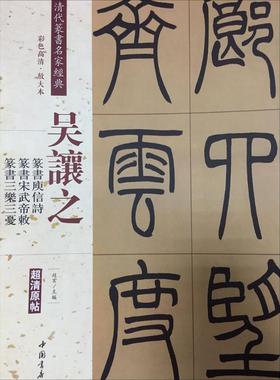 清代篆書名家經典
彩色高清·放大本
吴讓之
篆書庾信詩
篆書宋武帝敕
篆書三樂三憂
超清原帖
趙宏/主編
中国書店
齊雲度